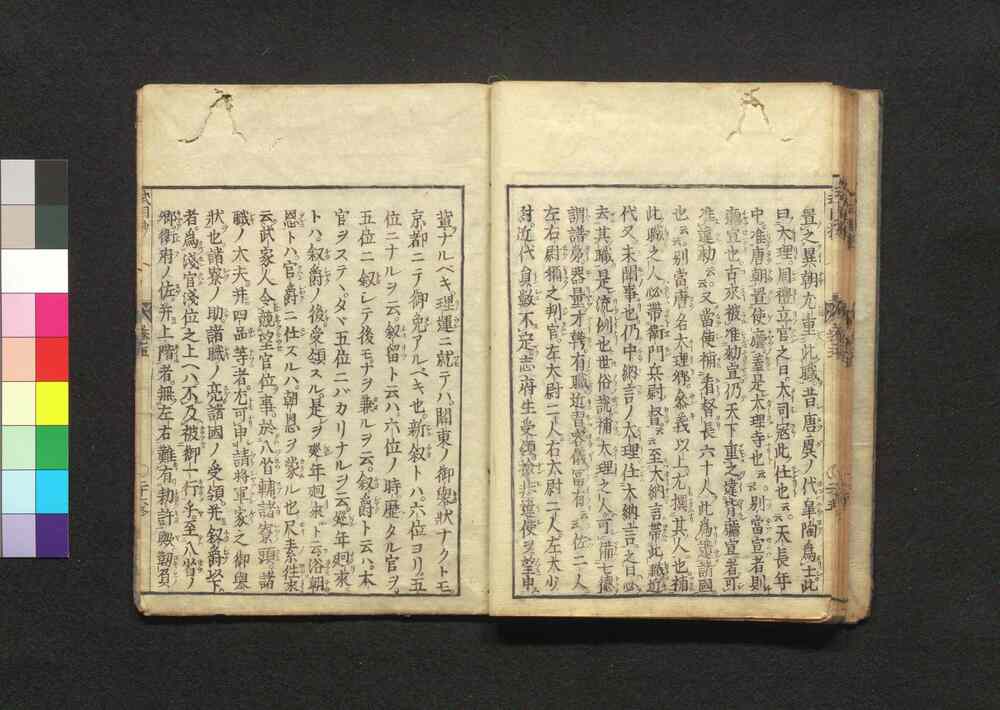 置之異朝尤重此職昔唐虞ノ代皐陶為士此
曰大理周禮立官之日大司冦此任也云云天長年
中准唐朝置使廳蓋是大理寺也云云別當宣者則
廳宣也古來被准勅宣仍天下重之違背廳宣者可
准違勅云云又當使稱看督長六十人此為遣諸國
也云云別當唐名大理卿参我以上尤撰其人也補
此職之人必帶衛門兵衛督云云至大納言帶此職近
代又未聞事也仍中納言ノ大理任大納言之日必
去其職是流例也世俗説補大理之人可備七德
謂譜第器量才幹有職近習容儀冨有云云佐二人
左右尉稱之判官左大尉二人右大尉二人左大少
尉近代員數不定志府生受領檢非違使ヲ望申
輩ナルベキ理運ニ就テハ関東ノ御擧状ナクトモ
京都ニテ御免アルベキ也新叙トハ六位ヨリ五
位ニナルヲ云叙留ト云ハ六位ノ時歴タル官ヲ
五位ニ叙シテ後モナヲ兼ルヲ云叙爵ト云ハ本
官ヲステヽタヾ五位ニバカリナルヲ云巡年廻來
トハ叙爵ノ後受領スル是ヲ巡年廻來ト云浴朝
恩トハ官爵ニ任スルハ朝恩ヲ蒙ル也尺素往來
云武家人令競望官位事於八省輔諸寮頭諸
職ノ太夫并四品等者尤可申請将軍家之御擧
状也諸寮ノ助諸職ノ亮諸國ノ受領并叙爵以下
者為淺官淺位之上ハ不及被御一行乎至八省ノ
卿衛府ノ佐并上階者無左右難有勅許歟勒負